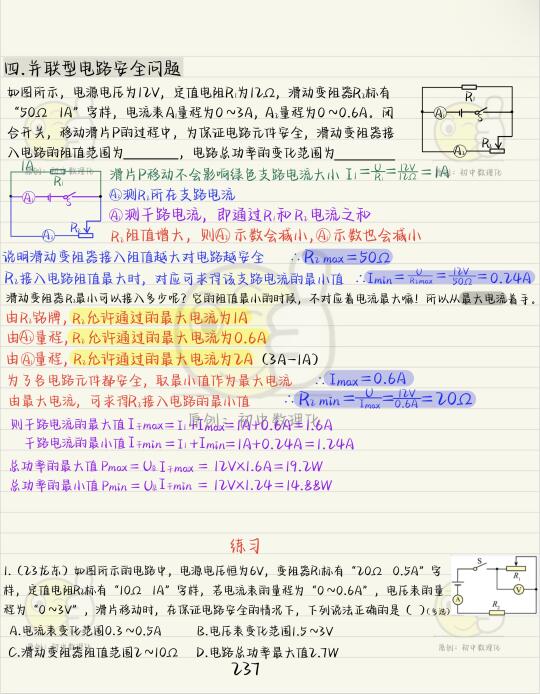 四.并联型电路安全问题
如图所示，电源电压为12V，定值电阻R₁为12Ω，滑动变阻器R₂标有
“50Ω 1A”字样，电流表A₁量程为0～3A，A₂量程为0～0.6A。闭
合开关，移动滑片P的过程中，为保证电路元件安全，滑动变阻器接
入电路的阻值范围为________，电路总功率的变化范围为________
R₁
A₁
S
R₂
A₂
1A
R₁
A₁
S
R₂
A₂
滑片P移动不会影响绿色支路电流大小 I₁=U/R₁=12V/12Ω=1A
A₂测R₂所在支路电流
A₁测干路电流，即通过R₁和R₂电流之和
R₂阻值增大，则A₂示数会减小，A₁示数也会减小
说明滑动变阻器接入阻值越大对电路越安全 ∴R₂ max=50Ω
R₂接入电路阻值最大时，对应可求得该支路电流的最小值 ∴Imin=U/R₂max=12V/50Ω=0.24A
滑动变阻器R₂最小可以接入多少呢？它的阻值最小的时候，不对应着电流最大嘛！所以从最大电流着手。
由R₂铭牌，R₂允许通过的最大电流为1A
由A₂量程，R₂允许通过的最大电流为0.6A
由A₁量程，R₂允许通过的最大电流为2A（3A-1A）
为了各电路元件都安全，取最小值作为最大电流 ∴Imax=0.6A
由最大电流，可求得R₂接入电路的最小值 ∴R₂ min=U/Imax=12V/0.6A=20Ω
则干路电流的最大值I干max=I₁+Imax=1A+0.6A=1.6A
干路电流的最小值I干min=I₁+Imin=1A+0.24A=1.24A
总功率的最大值Pmax=U总I干max=12V×1.6A=19.2W
总功率的最小值Pmin=U总I干min=12V×1.24=14.88W
原创：初中数理化
练习
1.（23龙东）如图所示的电路中，电源电压恒为6V，变阻器R₁标有“20Ω 0.5A”字
样，定值电阻R₂标有“10Ω 1A”字样，若电流表的量程为“0～0.6A”，电压表的量
程为“0～3V”，滑片移动时，在保证电路安全的情况下，下列说法正确的是（ ）(多选)
A.电流表变化范围0.3～0.5A B.电压表变化范围1.5～3V
C.滑动变阻器阻值范围2～10Ω D.电路总功率最大值2.7W
S
R₁
V
A
R₂
原创：初中数理化
237